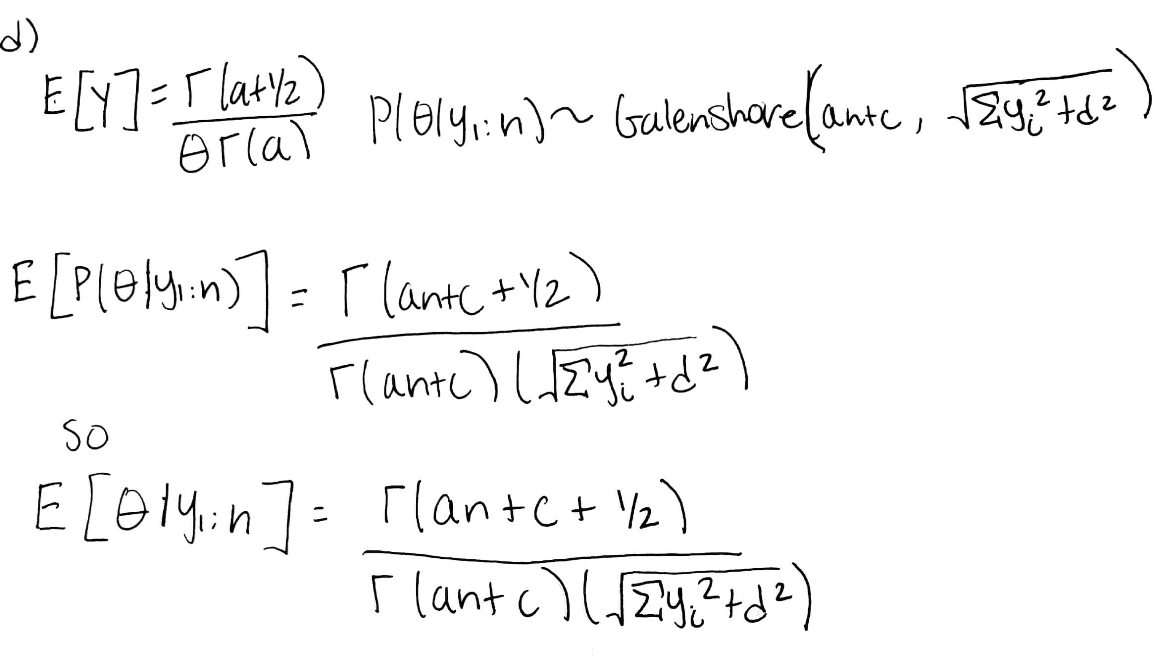 d)
E[Y] = Γ(a+1/2) / θΓ(a) P(θ|y₁:n) ~ Galenshore(an+c, √(Σyᵢ²+d²))
E[P(θ|y₁:n)] = Γ(an+c+1/2) / Γ(an+c)(√(Σyᵢ²+d²))
so
E[θ|y₁:n] = Γ(an+c+1/2) / Γ(an+c)(√(Σyᵢ²+d²))